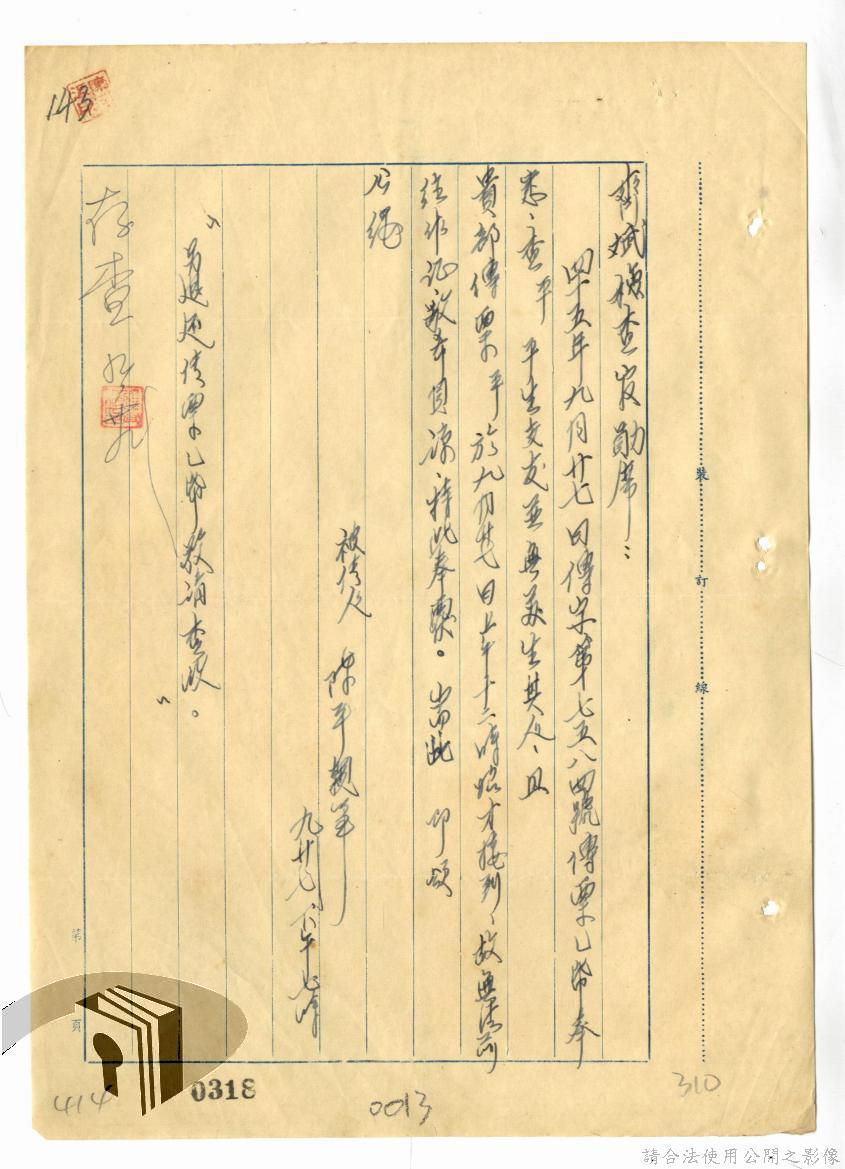 齊斌檢查官勛席：
四十五年九月廿七日傳字第七五八四號傳票乙帋奉
悉、查平　平生交友並無蘇生其人、且
貴部傳票平於九月廿七日上午十二時始才接到、故無法前
往作証、敬希見諒、特此奉聞。耑此　即頌
公綏
被傳人　陳平親筆
九廿七、下午七時
"
退還傳票乙帋敬請查收。
"
存查
143
裝
訂
線
第
頁
414
0318
0013
310
請合法使用公開之影像